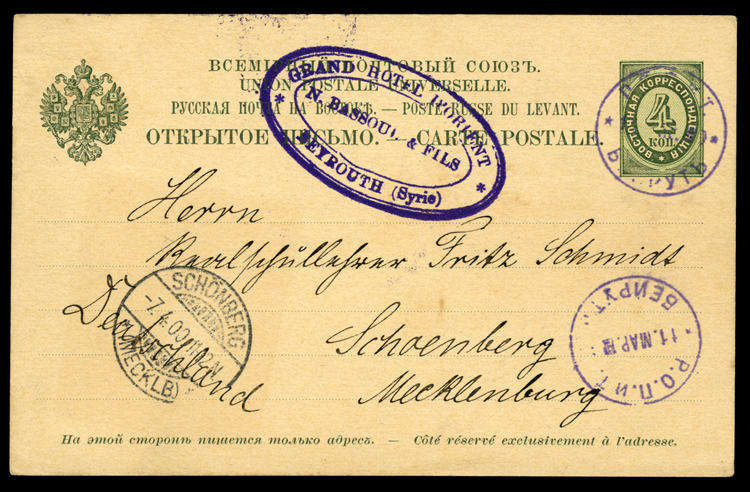 ВСЕМІРНЫЙ ПОЧТОВЫЙ СОЮЗЪ.
UNION POSTALE UNIVERSELLE.
РУССКАЯ ПОЧТА НА ВОСТОКѢ. — POSTE RUSSE DU LEVANT.
ОТКРЫТОЕ ПИСЬМО. — CARTE POSTALE.
* GRAND HOTEL D'ORIENT *
N. BASSOUL & FILS
BEYROUTH (Syrie)
ВОСТОЧНАЯ КОРРЕСПОНДЕНЦІЯ
4
КОП.
БЕЙРУТЪ
Herrn
Realschullehrer Fritz Schmidt
Schoenberg
Mecklenburg
Deutschland
SCHÖNBERG
-7.4.00
(MECKLB)
БЕЙРУТЪ
11. МАР.
Р.О.П.иТ.
На этой сторонѣ пишется только адресъ. — Côté réservé exclusivement à l'adresse.